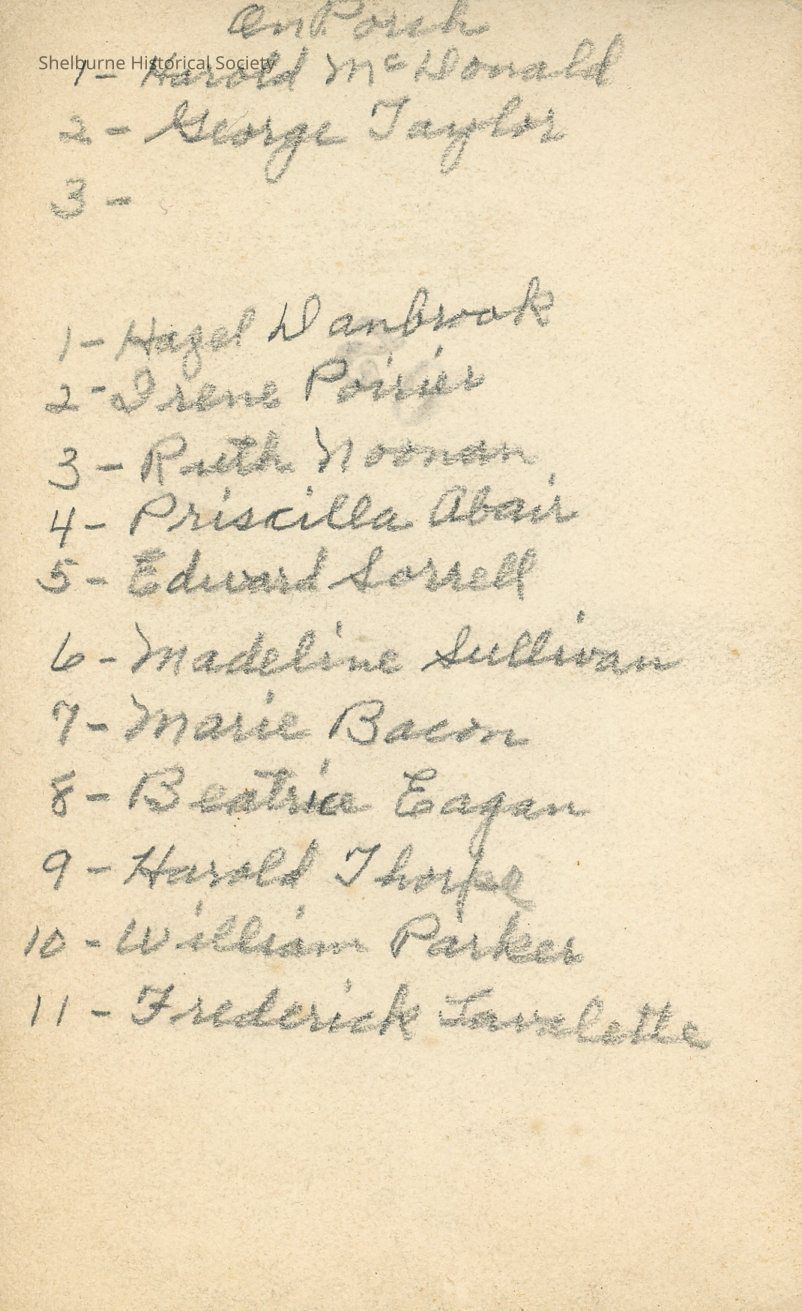 On Porch
Shelburne Historical Society
1- Harold McDonald
2- George Taylor
3-
1- Hazel Danbrook
2- Irene Poirier
3- Ruth Noonan
4- Priscilla Abair
5- Edward Sorrell
6- Madeline Sullivan
7- Marie Bacon
8- Beatrice Eagan
9- Harold Thorpe
10- William Parker
11- Frederick Lavalette